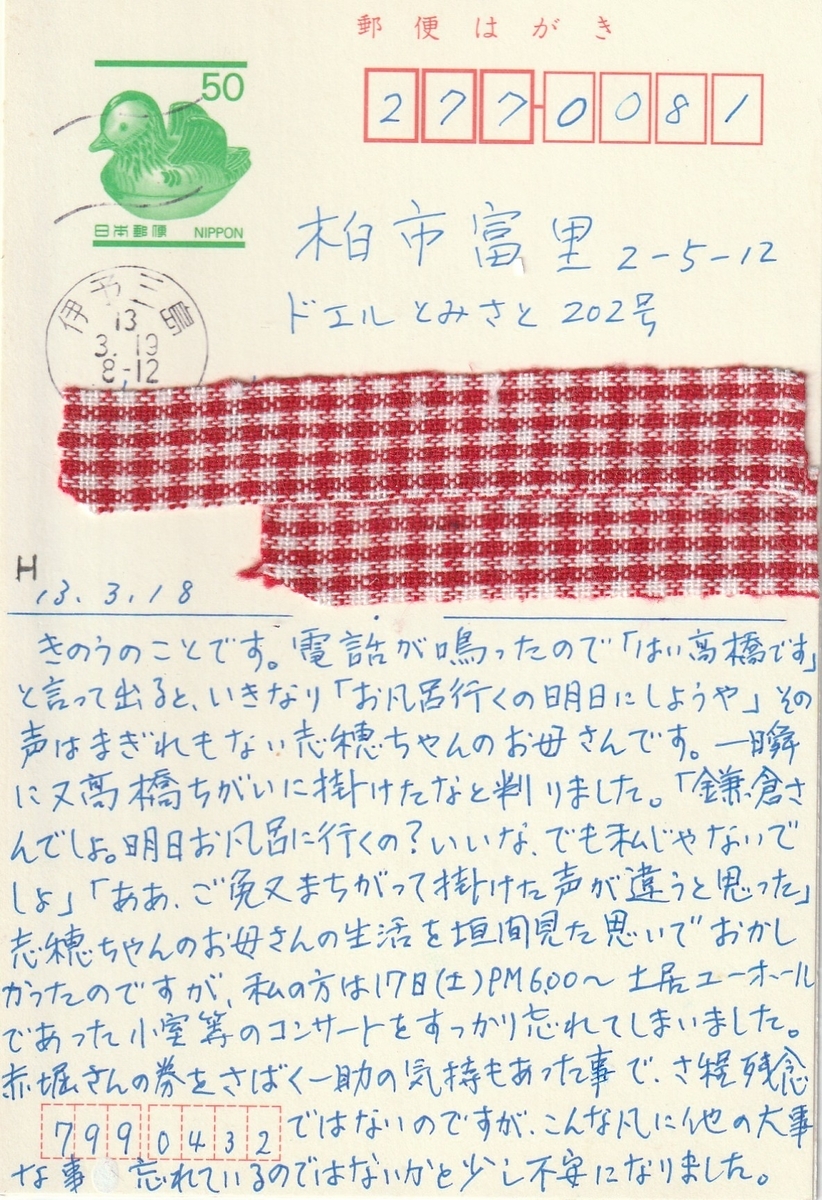 郵便はがき
50
日本郵便 NIPPON
277-0081
柏市富里 2-5-12
ドエルとみさと 202号
伊予三島
13
3. 19
8-12
H
13.3.18
きのうのことです。電話が鳴ったので「はい高橋です」
と言って出ると、いきなり「お風呂行くの明日にしようや」その
声はまぎれもない志穂ちゃんのお母さんです。一瞬
に又高橋ちがいに掛けたなと判りました。「鎌倉さ
んでしょ。明日お風呂に行くの?いいな、でも私じゃないで
しょ」「ああ、ご免又まちがって掛けた声が違うと思った」
志穂ちゃんのお母さんの生活を垣間見た思いでおかし
かったのですが、私の方は17日(土)PM6.00〜土居ユーホール
であった小室等のコンサートをすっかり忘れてしまいました。
赤堀さんの券をさばく一助の気持もあった事で、さ程残念
ではないのですが、こんな風に他の大事
な事 忘れているのではないかと少し不安になりました。
7990432